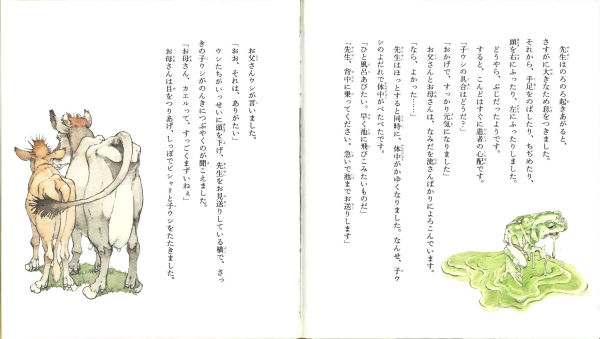 先生はのろのろ起きあがると、
さすがに大きなため息をつきました。
それから、手足をのばしたり、ちぢめたり、
頭を右にふったり、左にふったりしました。
どうやら、ぶじだったようです。
すると、こんどはすぐに患者の心配です。
「子ウシの具合はどうだ？」
「おかげで、すっかり元気になりました」
お父さんとお母さんは、なみだを流さんばかりによろこんでいます。
「なら、よかった……」
先生はほっとすると同時に、体中がかゆくなりました。なんせ、子ウ
シのよだれで体中がべたべたです。
「ひと風呂あびたい。早く池に飛びこみたいものだ」
「先生、背中に乗ってください。急いで池までお送りします」
お父さんウシが言いました。
「おお、それは、ありがたい」
ウシたちがいっせいに頭を下げ、先生をお見送りしている横で、さっ
きの子ウシがのんきにつぶやくのが聞こえました。
「お母さん、カエルって、すっごくまずいねぇ」
お母さんは目をつりあげ、しっぽでピシャリと子ウシをたたきました。